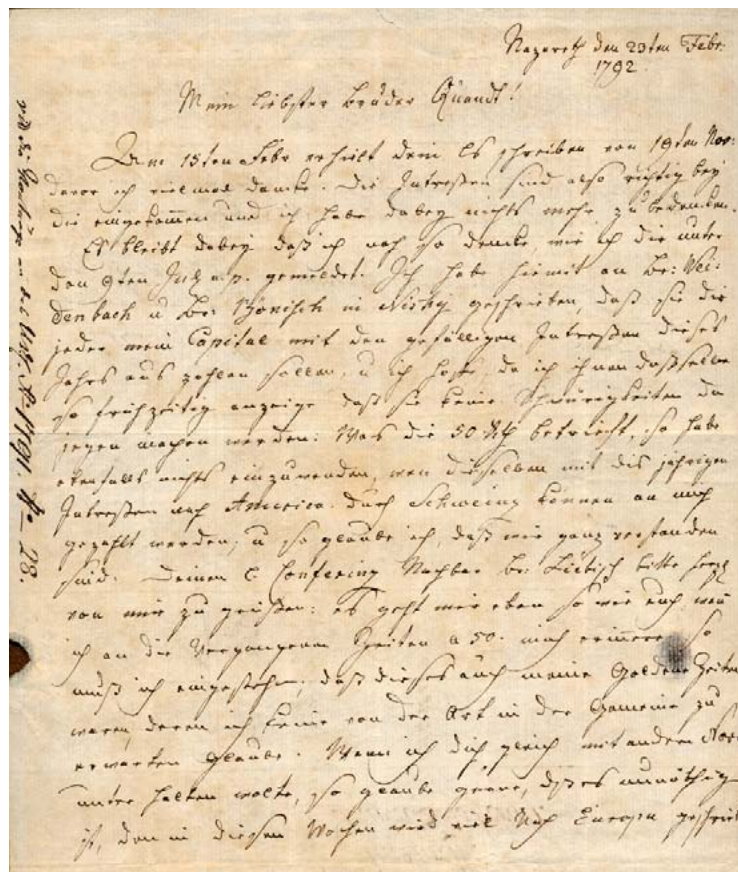 Nazareth den 23ten Febr.
1792.
Mein liebster Bruder Quandt!
Den 15ten Febr erhielt dein l. schreiben von 19ten Nov:
davor ich vielmal dancke. Die Intressen sind also richtig bey
die eingekommen und ich habe dabey nichts mehr zu bedencken.
Es bleibt dabey daß ich noch so dencke, wie ich die unter
den 9ten July a.p. gemeldet. Ich habe hiemit an Br: Wei-
denbach u Br: in Nisky geschrieben, daß sie die
jeder mein Capital mit den gefälligen Intressen dieses
Jahrs aus zahlen sollen, u ich hoffe, da ich ihnen dasselbe
so frühzeitig anzeige daß sie keine Schwürigkeiten da
gegen machen werden: Was die 50 betrieft, so habe
ebenfalls nichts einzuwenden, wen dieselben mit dis jährigen
Intressen nach America durch Schweinz können an mich
gezahlt werden, u so glaube ich, daß wir ganz verstanden
sind. Deinen l. Conferenz Nachbar Br: Liebisch bitte herzl
von mir zu grüßen: es geht mir eben so wie euch, wen
ich an die Vergangenen Zeiten a 50. mich erinnere, so
muß ich eingestehn, daß dieses auch meine Goldene Zeiten
waren, deren ich keine von der Art in der Gemeine zu
erwarten glaube. Wenn ich dich gleich mit andern
unter halten wolte, so glaube gerne, daß es unnöthig
ist, den in diesen Wochen wird viel nach Europa
A. 1791. No 28.